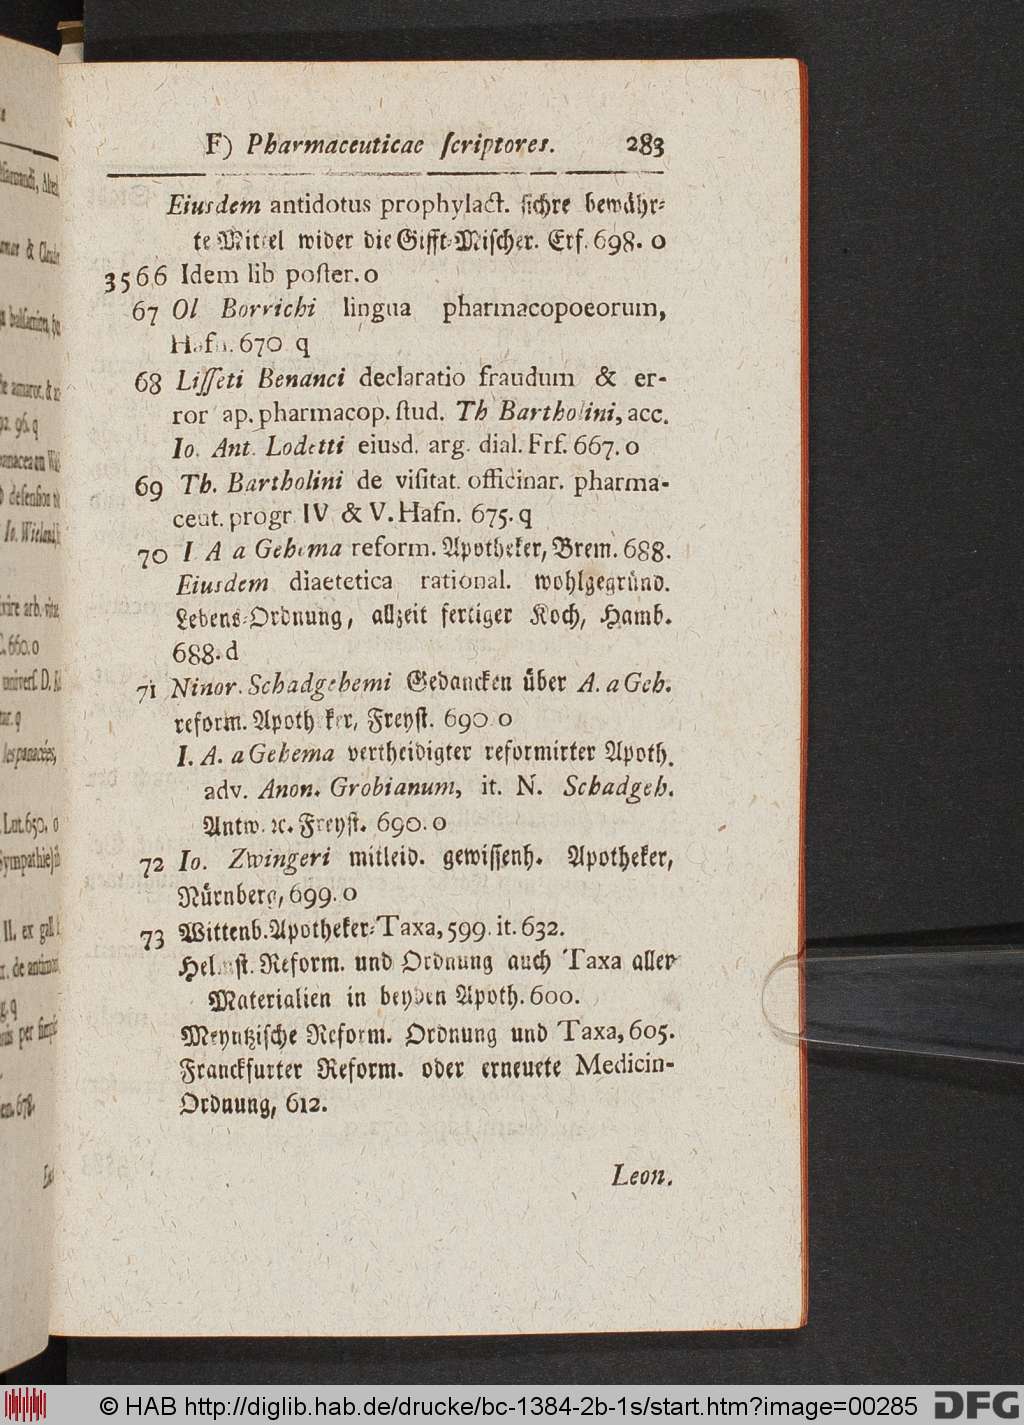 F) Pharmaceuticae ſcriptores. 283
Eiusdem antidotus prophylact. ſichre bewaͤhr⸗
te Mittel wider die Gifft⸗Miſcher. Erf. 698. o
3566 Idem lib poſter. o
67 Ol Borrichi lingua pharmacopoeorum,
Hafn. 670 q
68 Liſſeti Benanci declaratio fraudum & er-
ror ap. pharmacop. ſtud. Th Bartholini, acc.
Io. Ant. Lodetti eiusd. arg. dial. Frf. 667. o
69 Th. Bartholini de viſitat. officinar. pharma-
ceut. progr IV & V. Hafn. 675. q
70 I A a Gehema reform. Apotheker, Brem. 688.
Eiusdem diaetetica rational. wohlgegruͤnd.
Lebens⸗Ordnung, allzeit fertiger Koch, Hamb.
688. d
71 Ninor. Schadgehemi Gedancken uͤber A. a Geh.
reform. Apotheker, Freyſt. 690 o
I. A. a Gehema vertheidigter reformirter Apoth.
adv. Anon. Grobianum, it. N. Schadgeh.
Antw. ꝛc. Freyſt. 690. o
72 Io. Zwingeri mitleid. gewiſſenh. Apotheker,
Nuͤrnberg, 699. o
73 Wittenb. Apotheker⸗Taxa, 599. it. 632.
Helmſt. Reform. und Ordnung auch Taxa aller
Materialien in beyden Apoth. 600.
Meyntziſche Reform. Ordnung und Taxa, 605.
Franckfurter Reform. oder erneuete Medicin-
Ordnung, 612.
Leon.
© HAB http://diglib.hab.de/drucke/bc-1384-2b-1s/start.htm?image=00285
DFG